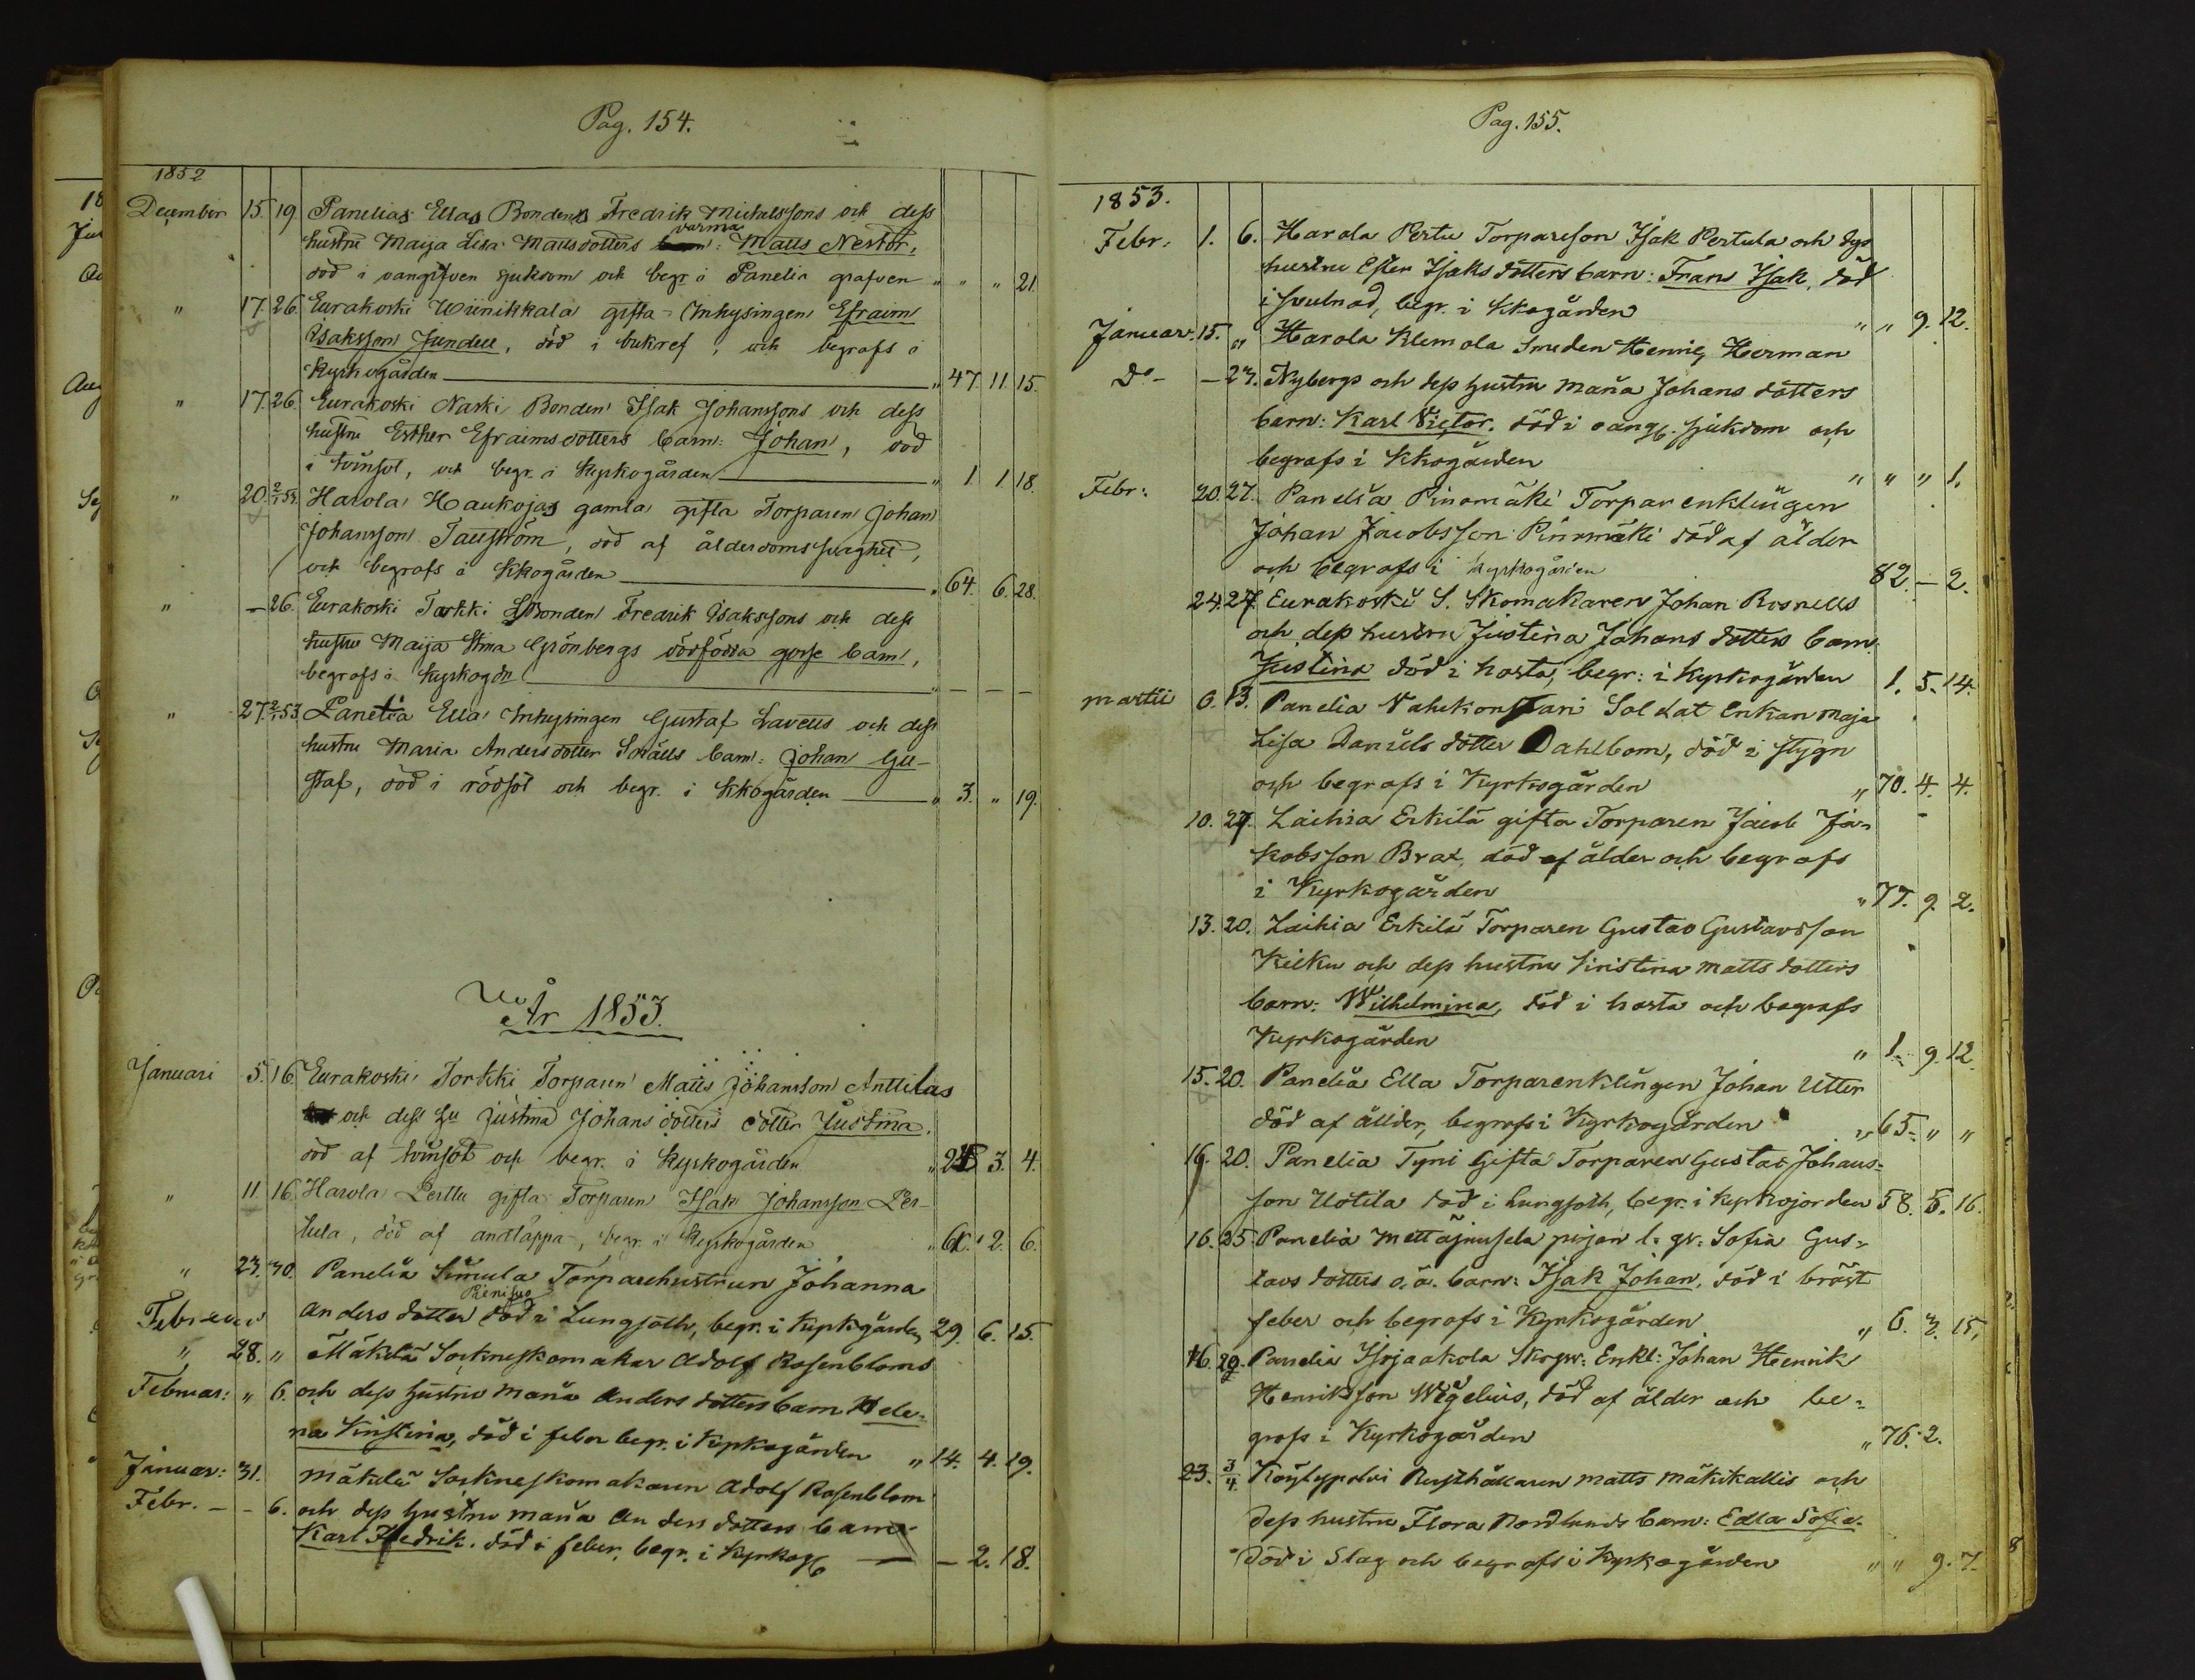 Pag. 154.
1852
December 15. 19. Panelias Ellas Bondens Fredrik Michelssons och dess
hustru Maija Lisa Mattsdotters barn: Matts Nestor,
död i oangifven sjukdom och begr. i Panelia grafven " " " 21.
" 17. 26. Eurakoski Wiinikkala gifta Inhysingen Efraim
Isaksson Jundell, död i bukref, och begrafs i
Kyrkogården " 47 11. 15.
" 17. 26. Eurakoski Naski Bonden Isak Johanssons och dess
hustru Esther Efraimsdotters barn: Johan, död
i tvinsot, och begr. i Kyrkogården " 1 1 18.
" 20. 2/1 53. Harola Haukojas gamla gifta Torparen Johan
Johansson Tallström, död af ålderdomssvaghet,
och begrafs i Kkogården " 64. 6. 28.
" — 26. Eurakoski Torkki Bonden Fredrik Isakssons och dess
hustru Maija Stina Grönbergs dödfödda gosse barn,
begrafs i Kyrkogdn " — — —
" 27. 2/1 53. Panelia Ella Inhysingen Gustaf Lavells och dess
hustru Maria Andersdotter barn: Johan Gu-
staf, död i rödsot och begr. i Kkogården " 3. " 19.
År 1853.
Januari 5. 16. Eurakoski Torkki Torparen Matts Johansson Anttilas
och dess hu Justina Johansdotters dotter Justina,
död af tvinsot och begr. i Kyrkogården " 3. 4.
" 11. 16. Harola Perttu gifta Torparen Isak Johansson Per-
tula, död af andtäppa, begr. i Kyrkogården " 2. 6.
" 23. 30. Panelia Simula Torparehustrun Johanna
Anders dotter död i Lungsoth, begr. i Kyrkogården 29. 6. 15.
Februari
" 28. " Mäkilä Sockneskomakar Adolf Rosenbloms
Februar: " 6. och dess hustru Maria Anders dotters barn Hele-
na Kristina, död i feber begr. i Kyrkogården " 14. 4. 19.
Januar: 31. Mäkilä Sockneskomakaren Adolf Rosenblom
Febr. — - 6. och dess hustru Maria Anders dotters barn
Karl Fredrik, död i feber, begr. i Kyrkog — — 2. 18.
Pag. 155.
1853.
Febr. 1. 6. Harola Pertu Torpareson Isak Pertula och dess
hustru Ester Isaks dotters barn: Frans Isak, död
i svulnad, begr. i Kkogården " " 9. 12.
Januar. 15. " Harola Klemola Smeden Henric Herman
Do - — 23. Nybergs och dess hustru Maria Johans dotters
barn: Karl Victor, död i oangf. sjukdom och
begrafs i Kkogården " " " 1.
Febr: 20. 27. Panelia Pinomäki Torparenklingen
Johan Jacobsson Pinomäki död af ålder
och begrafs i Kyrkogården 82. — 2.
24. 27. Eurakoski S. Skomakaren Johan Rosnells
och dess hustru Justina Johans dotters barn
Justina död i hosta, begr: i Kyrkogården 1. 5. 14.
Martii 6. 13. Panelia Soldat Enkan Maja
Lisa Daniels dotter Dahlbom, död i stygn
och begrafs i Kyrkogården " 70. 4. 4.
10. 27. Laihia Erkilä gifta Torparen Jacob Ja-
kobsson Brax, död af ålder och begrafs
i Kyrkogården " 77. 9. 2.
13. 20. Laihia Erkilä Torparen Gustav Gustavsson
Kiiku och dess hustru Kristina Matts dotters
barn: Wilhelmina, död i hosta och begrafs
Kyrkogården " 1. 9. 12.
15. 20. Panelia Ella Torparenklingen Johan Utter
död af ållder, begrafs i Kyrkogården " 65. " "
16. 20. Panelia Tyni Gifta Torparen Gustav Johans-
son Uotila död i Lungsoth, begr. i Kyrkojorden 58. 5. 16.
16. 25. Panelia pigan l: gr: Sofia Gus-
tavs dotters o.ä. barn: Isak Johan, död i bröst
feber och begrafs i Kyrkogården " 6. 3. 15.
16. 29. Panelia Isojaakola Enkl: Johan Henrik
Henriksson Wegelius, död af ålder och be-
grafs i Kyrkogården " 76. 2.
23. 3/4. Köylypolvi Rusthållaren Matts Mäkikallis och
dess hustru Flora Nordlunds barn: Edla Sofia.
död i Slag och begrafs i Kyrkogården " " 9. 7.